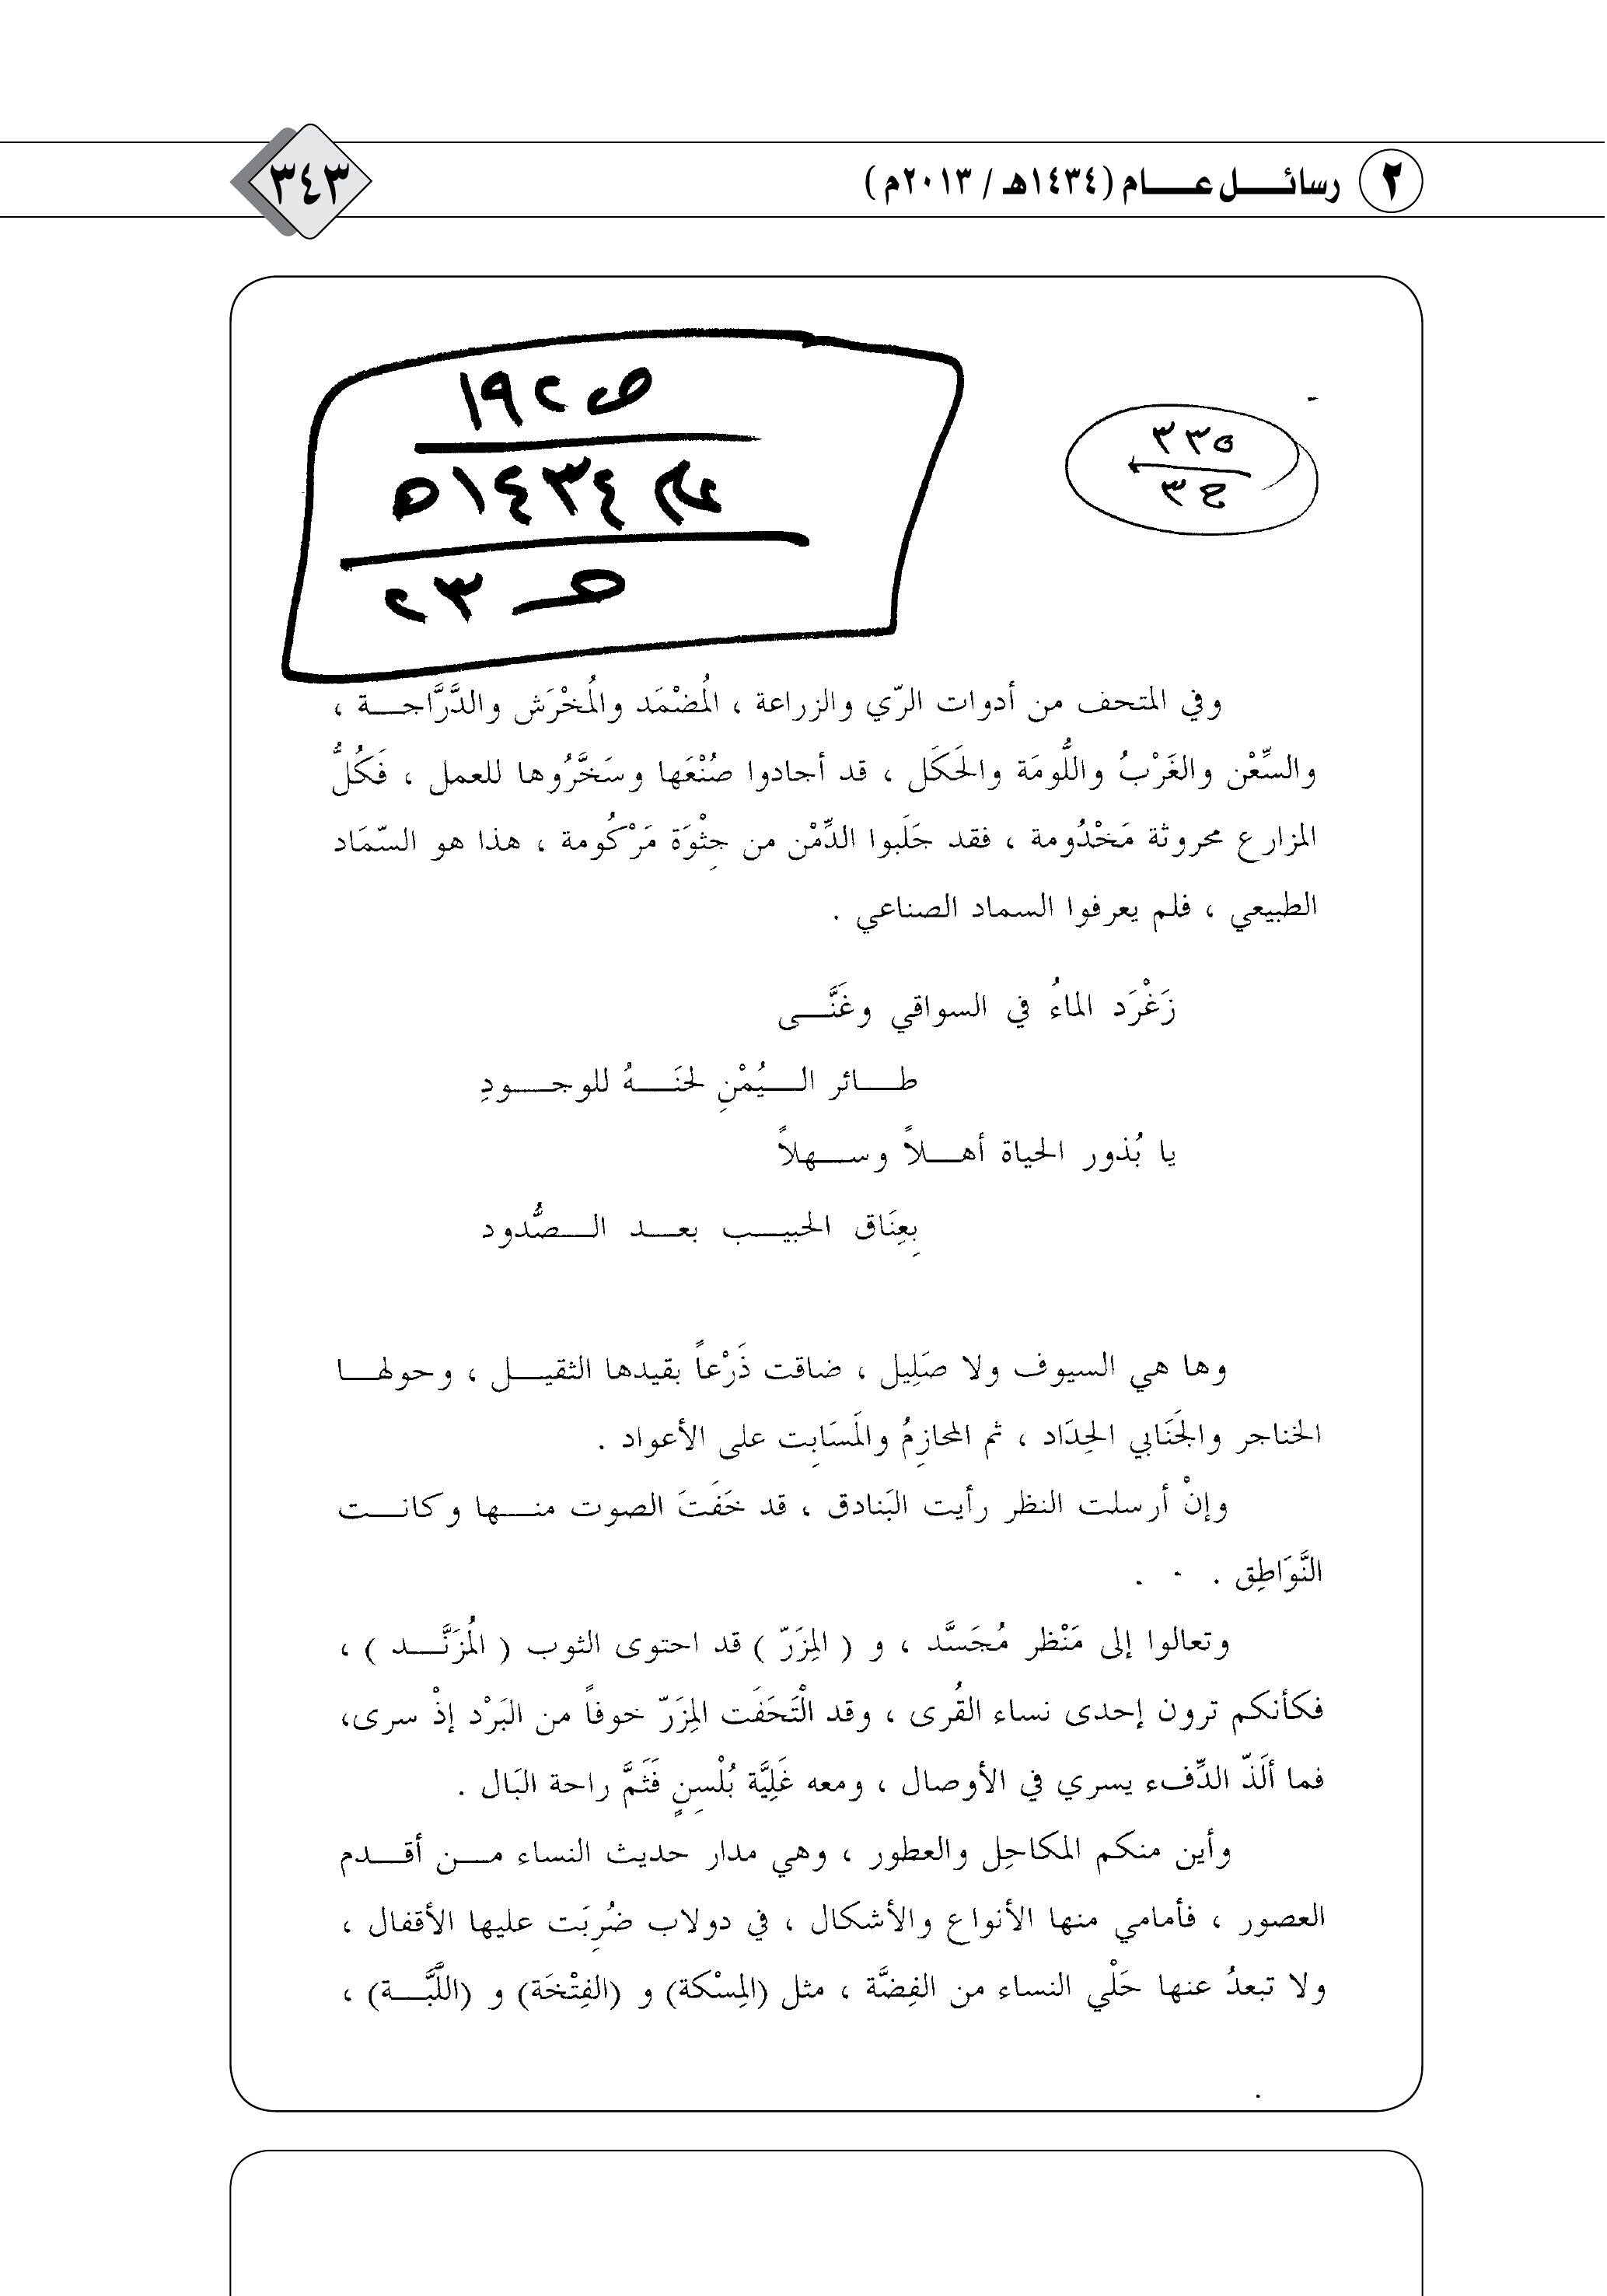 ٢ رسائل عام (١٤٣٤هـ / ٢٠١٣م)
٣٤٣
ص ١٩٢
عام ١٤٣٤ه
٢٣
٣٣٥
ج ٣
وفي المتحف من أدوات الرّي والزراعة ، المُضْمَد والمُخْرَش والدَّرَّاجة ،
والسِّعْن والغَرْبُ واللُّومَة والحَكَل ، قد أجادوا صُنْعَها وسَخَّرُوها للعمل ، فَكُلُّ
المزارع محروثة مَخْدُومة ، فقد جَلَبوا الدِّمْن من جِثْوَة مَرْكُومة ، هذا هو السّمَاد
الطبيعي ، فلم يعرفوا السماد الصناعي .
زَغْرَد الماءُ في السواقي وغَنَّى
طائر اليُمْنِ لحنَهُ للوجودِ
يا بُذور الحياة أهلاً وسهلاً
بِعِنَاق الحبيب بعد الصُّدود
وها هي السيوف ولا صَلِيل ، ضاقت ذَرْعاً بقيدها الثقيل ، وحولها
الخناجر والجَنَابي الحِدَاد ، ثم المحازِمُ والمَسَابِت على الأعواد .
وإنْ أرسلت النظر رأيت البَنادق ، قد خَفَتَ الصوت منها وكانت
النَّوَاطِق . . .
وتعالوا إلى مَنْظر مُجَسَّد ، و ( المِزَرّ ) قد احتوى الثوب ( المُزَنَّد ) ،
فكأنكم ترون إحدى نساء القُرى ، وقد الْتَحَفَت المِزَرّ خوفاً من البَرْد إذْ سرى،
فما ألَذّ الدِّفء يسري في الأوصال ، ومعه غَلِيَّة بُلْسِنٍ فَثَمَّ راحة البَال .
وأين منكم المكاحِل والعطور ، وهي مدار حديث النساء من أقدم
العصور ، فأمامي منها الأنواع والأشكال ، في دولاب ضُرِبَت عليها الأقفال ،
ولا تبعدُ عنها حَلْي النساء من الفِضَّة ، مثل (المِسْكة) و (الفِتْخَة) و (اللَّبَّة) ،